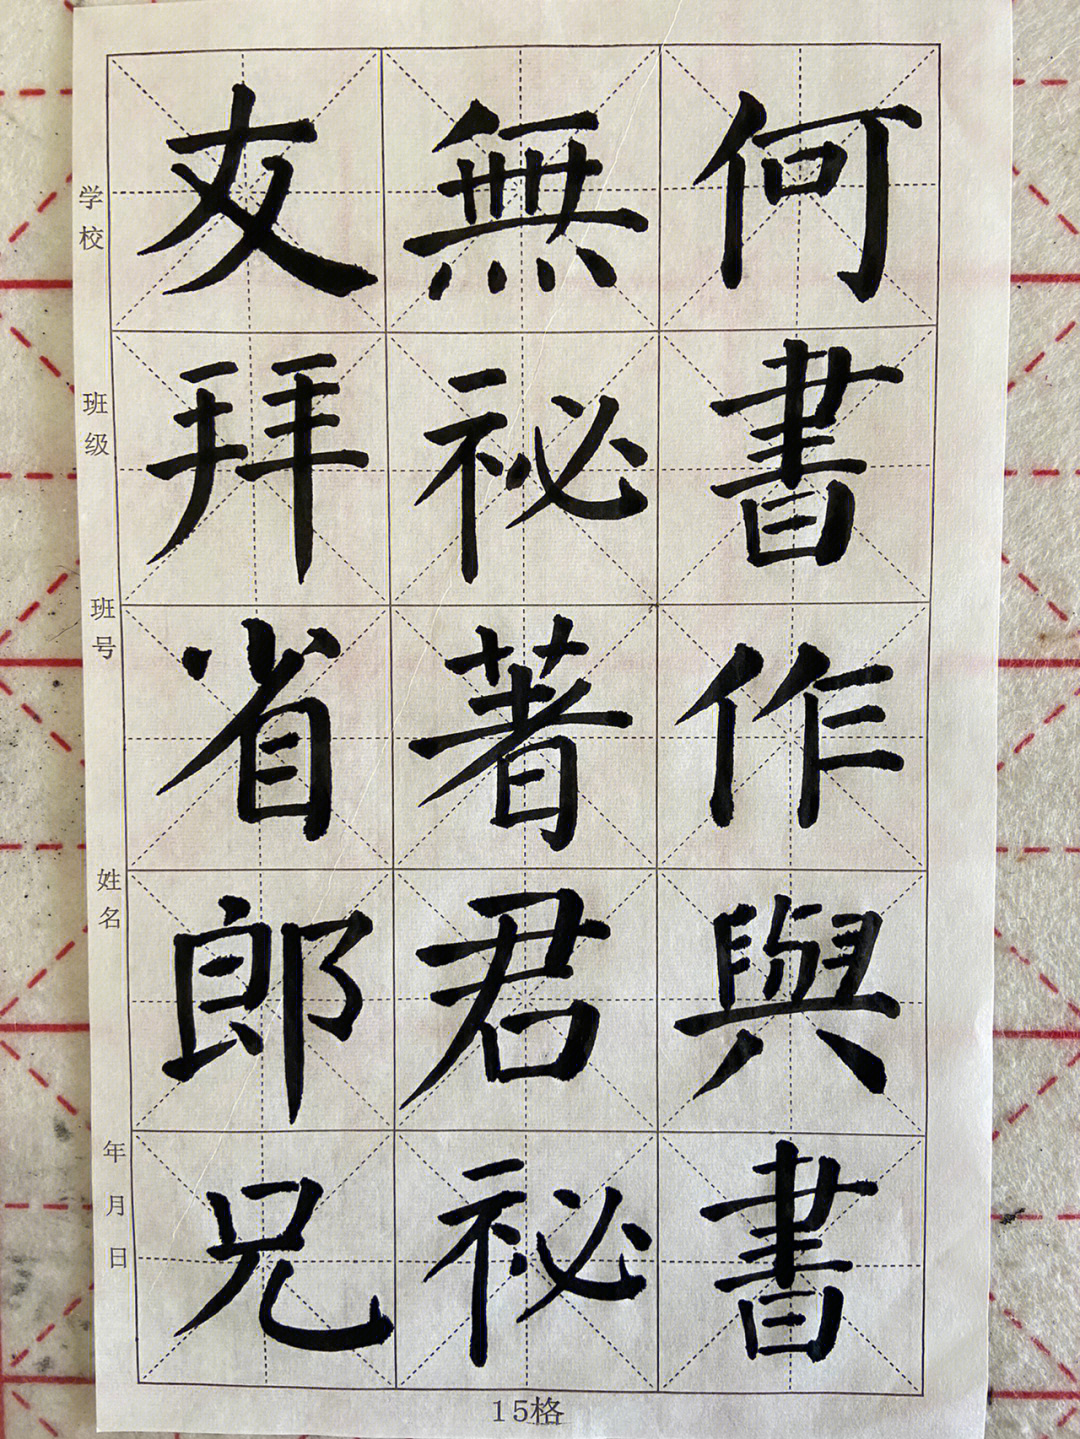 友無何
拜祕書
省著作
郎君與
兄祕書
学校
班级
班号
姓名
年月日
15格